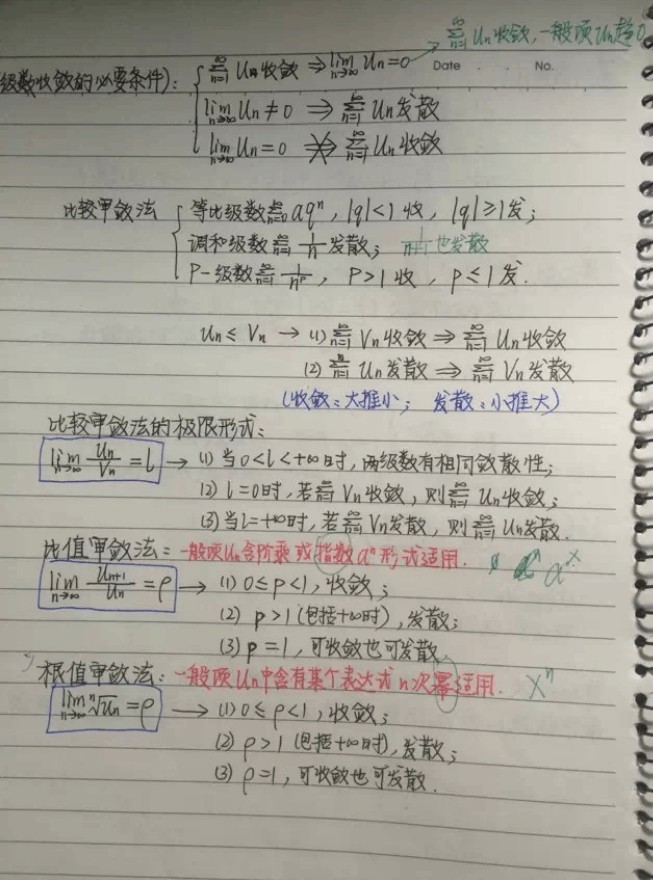 ∑_{n=1}^{∞} Un收敛,一般项Un趋0
Date . . No.
级数收敛的必要条件): { ∑_{n=1}^{∞} Un收敛 ⇒ lim_{n→∞} Un=0
lim_{n→∞} Un≠0 ⇒ ∑_{n=1}^{∞} Un发散
lim_{n→∞} Un=0 ⇏ ∑_{n=1}^{∞} Un收敛
比较审敛法 { 等比级数∑_{n=0}^{∞} aqⁿ, |q|<1 收, |q|≥1发;
调和级数∑_{n=1}^{∞} 1/n 发散; 1/(n+1)也发散
P-级数∑_{n=1}^{∞} 1/nᵖ, P>1收, P≤1发.
Un≤Vn → (1) ∑_{n=1}^{∞} Vn收敛 ⇒ ∑_{n=1}^{∞} Un收敛
(2) ∑_{n=1}^{∞} Un发散 ⇒ ∑_{n=1}^{∞} Vn发散
(收敛:大推小; 发散:小推大)
比较审敛法的极限形式:
lim_{n→∞} Un/Vn = l → (1) 当0<l<+∞时,两级数有相同敛散性;
(2) l=0时,若∑_{n=1}^{∞} Vn收敛,则∑_{n=1}^{∞} Un收敛;
(3) 当l=+∞时,若∑_{n=1}^{∞} Vn发散,则∑_{n=1}^{∞} Un发散.
比值审敛法:一般项Un含阶乘或指数aⁿ形式适用. aˣ
lim_{n→∞} Un+1/Un = ρ → (1) 0≤ρ<1,收敛;
(2) ρ>1(包括+∞时),发散;
(3) ρ=1,可收敛也可发散
根值审敛法:一般项Un中含有某个表达式n次幂适用. Xⁿ
lim_{n→∞} ⁿ√Un = ρ → (1) 0≤ρ<1,收敛;
(2) ρ>1(包括+∞时),发散;
(3) ρ=1,可收敛也可发散.